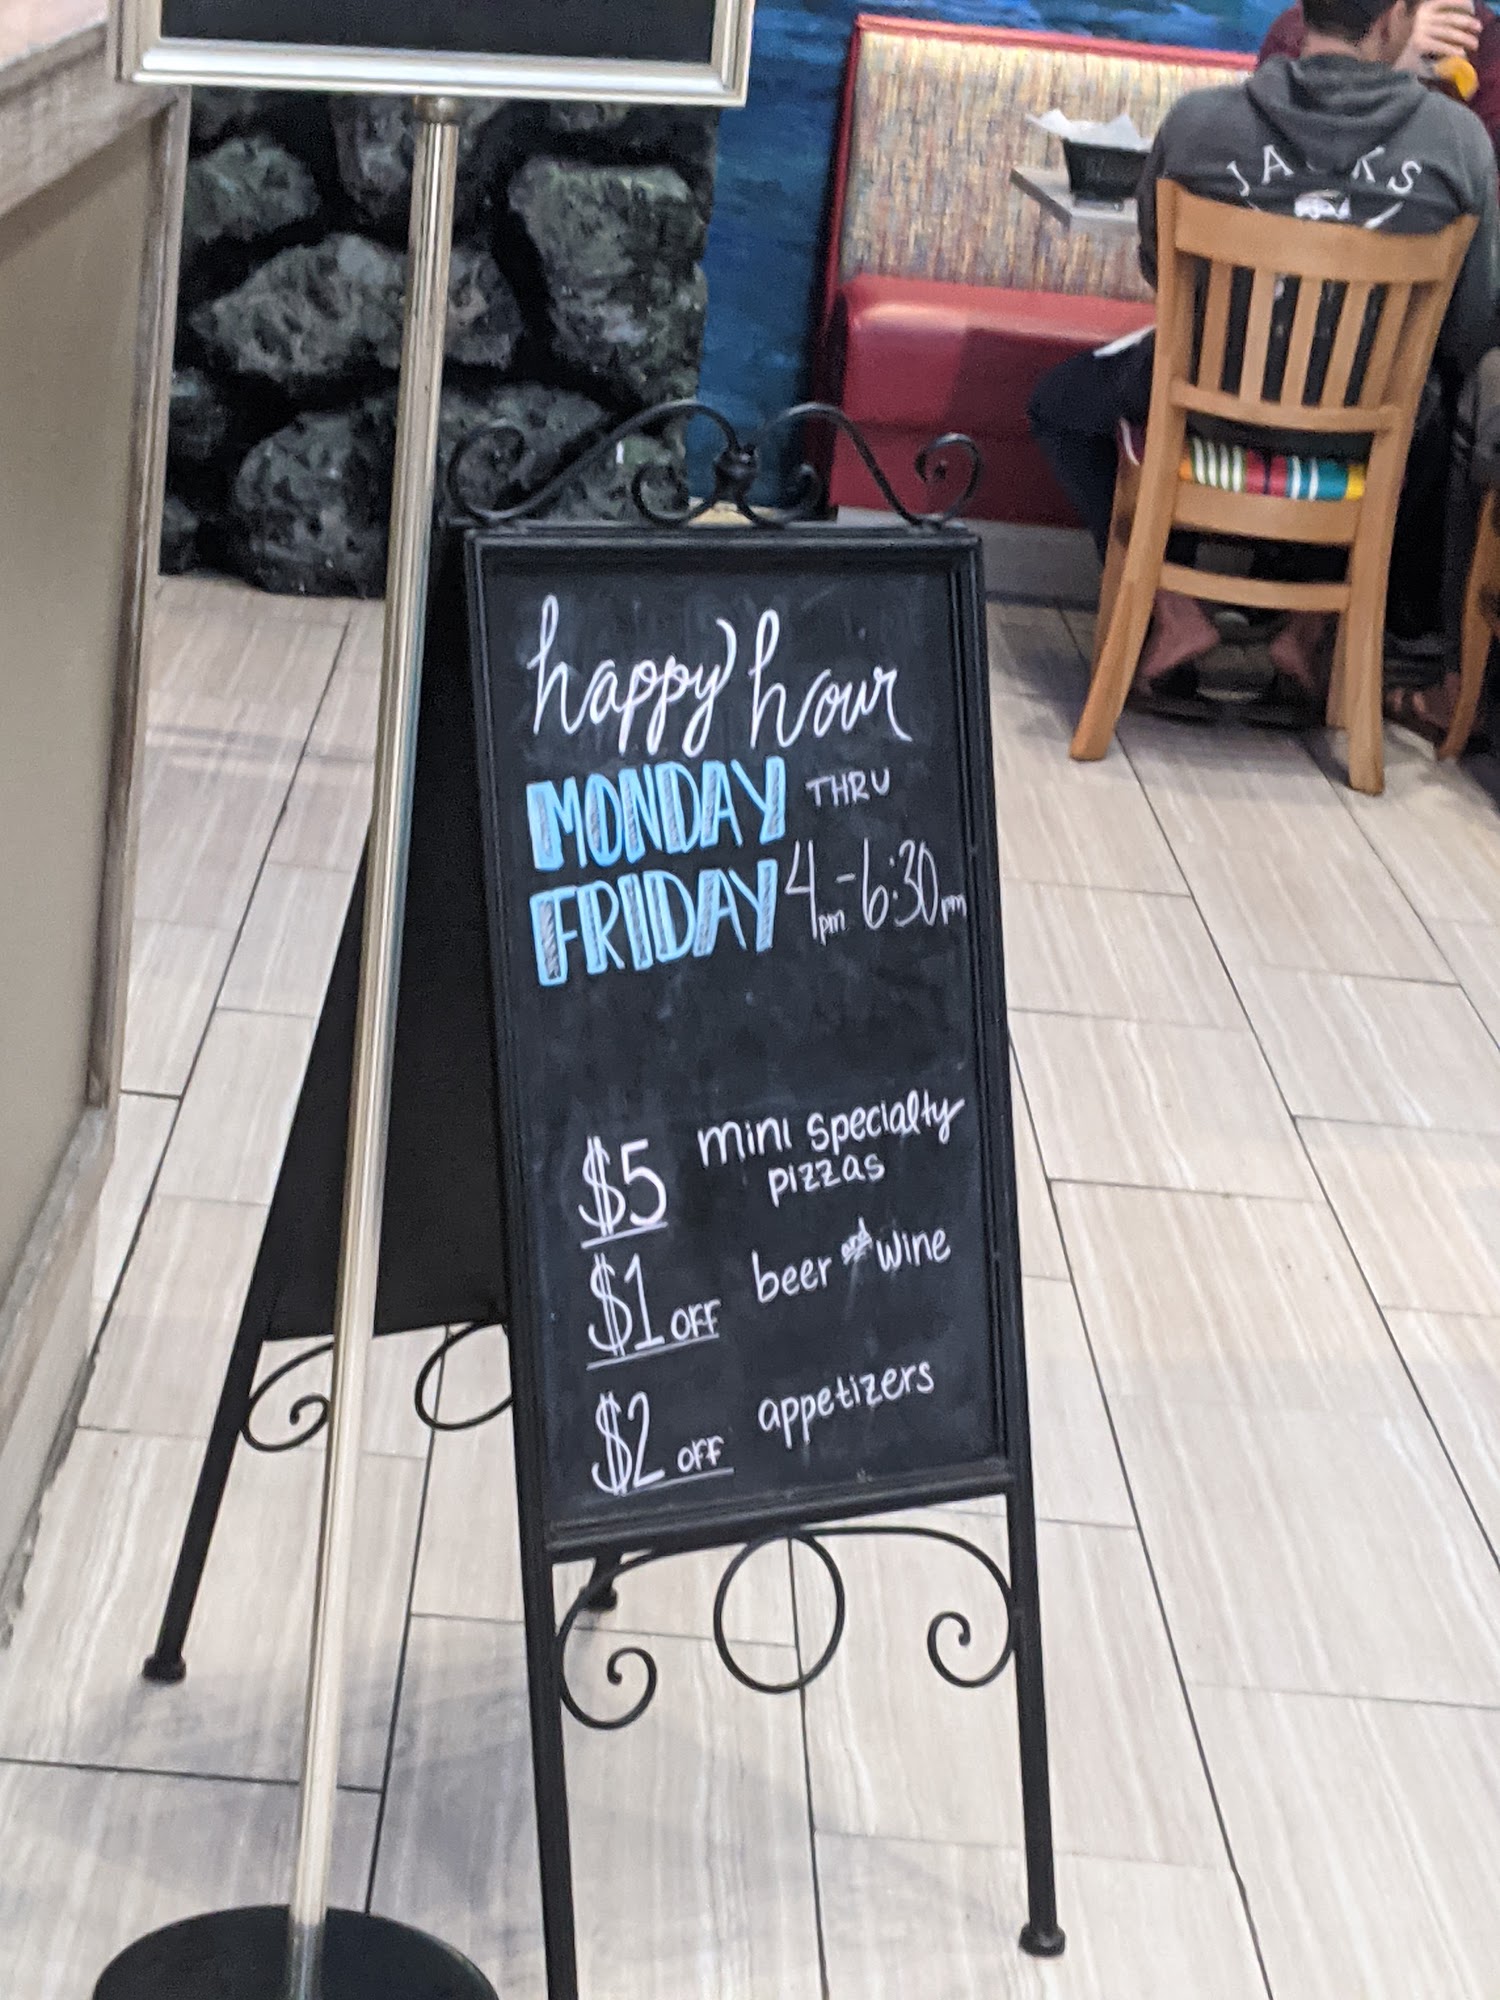 happy hour
MONDAY THRU
FRIDAY 4pm-6:30pm
$5 mini specialty
pizzas
$1 OFF beer and wine
$2 OFF appetizers